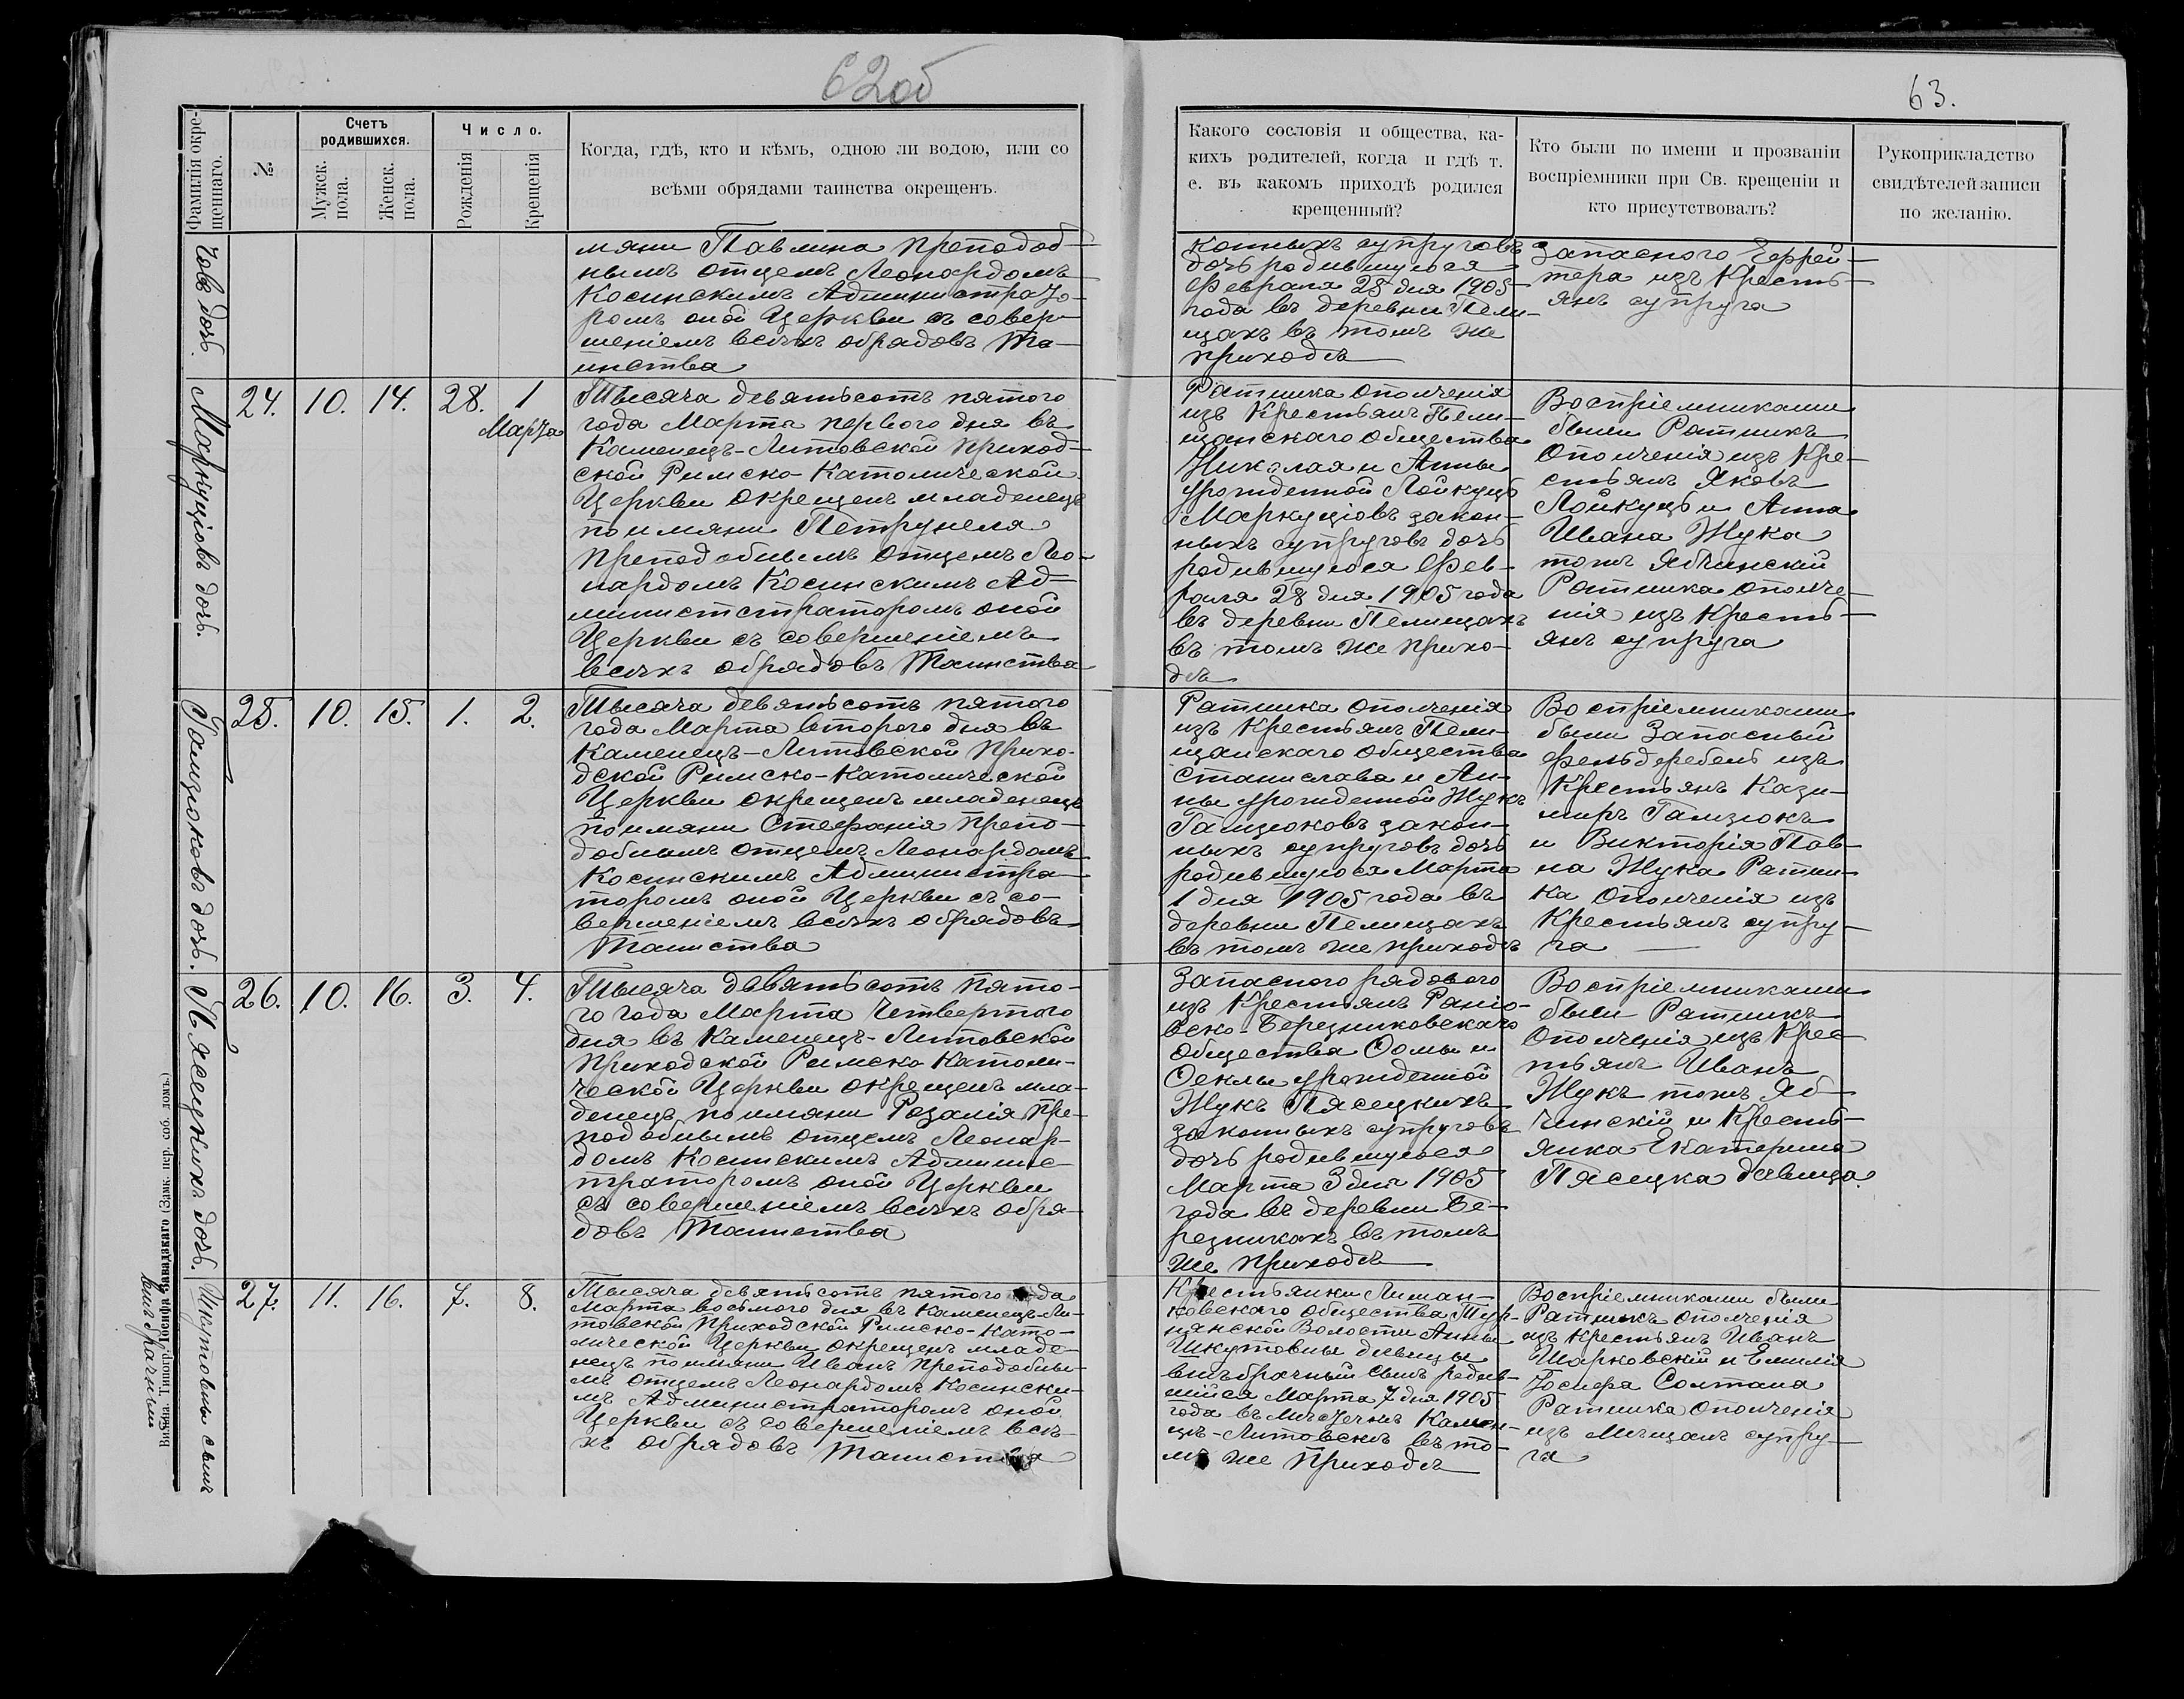 62об
63.
Фамилія окре-
щеннаго.
№
Счетъ
родившихся.
Мужск.
пола.
Женск.
пола.
Число.
Рожденія
Крещенія
Когда, гдѣ, кто и кѣмъ, одною ли водою, или со
всѣми обрядами таинства окрещенъ.
Какого сословія и общества, ка-
кихъ родителей, когда и гдѣ т.
е. въ какомъ приходѣ родился
крещенный?
Кто были по имени и прозванію
воспріемники при Св. крещеніи и
кто присутствовалъ?
Рукоприкладство
свидѣтелей записи
по желанію.
човъ дочь.
мяни Павлина преподоб-
нымъ отцемъ Леонардомъ
Косинскимъ Администрато-
ромъ оной Церкви съ совер-
шеніемъ всѣхъ обрядовъ Та-
инства
конныхъ супруговъ
дочь родившуюся
Февраля 25 дня 1905
года въ деревни Пели-
щахъ въ томъ же
приходѣ
Запасного Ефрей-
тера изъ Кресть-
янъ супруга
Маркуціовъ дочь.
24. 10. 14. 28. 1
Марта
Тысяча девятьсотъ пятого
года Марта первого дня въ
Каменецъ-Литовской приход-
ской Римско-Католической
Церкви окрещенъ младенецъ
по имяни Петрунеля
преподобнымъ отцемъ Лео-
нардомъ Косинскимъ Ад-
министстраторомъ оной
Церкви съ совершеніемъ
всѣхъ обрядовъ Таинства
Ратника ополченія
изъ Крестьянъ Пели-
щанскаго общества
Николая и Анны
урожденной Лойкуцъ
Маркуціовъ закон-
ныхъ супруговъ дочь
родившуюся Фев-
раля 28 дня 1905 года
въ деревни Пелищахъ
въ томъ же прихо-
дѣ
Воспріемниками
были Ратникъ
Ополченія изъ Кре-
стьянъ Яковъ
Лойкуцъ и Анна
Ивана Жука
тожъ Ябчинскій
Ратника ополче-
нія изъ Кресть-
янъ супруга
Гамзюковъ дочь.
25. 10. 15. 1. 2.
Тысяча девятьсотъ пятого
года Марта второго дня въ
Каменецъ-Литовской Прихо-
дской Римско-Католической
Церкви окрещенъ младенецъ
по имяни Стефанія препо-
добнымъ отцемъ Леонардомъ
Косинскимъ Администра-
торомъ оной Церкви съ со-
вершеніемъ всѣхъ обрядовъ
Таинства
Ратника ополченія
изъ Крестьянъ Пели-
щанскаго общества
Станислава и Ан-
ны урожденной Жукъ
Гамзюковъ закон-
ныхъ супруговъ дочь
родившуюся Марта
1 дня 1905 года въ
деревни Пелищахъ
въ томъ же приходѣ
Воспріемниками
были Запасный
фельдфебель изъ
Крестьянъ Кази-
миръ Гамзюкъ
и Викторія Пав-
на Жука Ратни-
ка Ополченія изъ
Крестьянъ супру-
га
Пясецкихъ дочь.
26. 10. 16. 3. 4.
Тысяча девятьсотъ пято-
го года Марта Четвертого
дня въ Каменецъ-Литовской
Приходской Римско Католи-
ческой Церкви окрещенъ мла-
денецъ по имяни Розалія пре-
подобнымъ отцемъ Леонар-
домъ Косинскимъ Админис-
траторомъ оной Церкви
съ совершеніемъ всѣхъ обря-
довъ Таинства
Запасного рядового
изъ Крестьянъ
Березниковскаго
общества Ѳомы и
Ѳеклы урожденной
Жукъ Пясецкихъ
законныхъ супруговъ
дочь родившуюся
Марта 3 дня 1905
года въ деревни Бе-
резникахъ въ томъ
же приходѣ
Воспріемниками
были Ратникъ
Ополченія изъ Крес-
тьянъ Иванъ
Жукъ тожъ Яб-
чинскій и Кресть-
янка Екатерина
Пясецка дѣвица.
Шкутовны сынъ
внѣбрачный
27. 11. 16. 7. 8.
Тысяча девятьсотъ пятого года
Марта восьмого дня въ Каменецъ-Ли-
товской Приходской Римско-Като-
лической Церкви окрещенъ младе-
нецъ по имяни Иванъ преподобны-
мъ отцемъ Леонардомъ Косински-
мъ Администраторомъ оной
Церкви съ совершеніемъ всѣ-
хъ обрядовъ Таинства
Крестьянки Лиман-
ковскаго общества Тур-
нянской Волости Анны
Шкутовны дѣвицы
внѣбрачный сынъ родив-
шійся Марта 7 дня 1905
года въ мѣстечкѣ Камен-
цѣ-Литовскѣ въ то-
мъ же Приходѣ
Воспріемниками были
Ратникъ ополченія
изъ Крестьянъ Иванъ
Шарковскій и Емилія
Іосифа Солтана
Ратника Ополченія
изъ Мѣщанъ супру-
га
Вильна. Типогр. Іосифа Завадзкаго (Замк. пер. соб. домъ.)